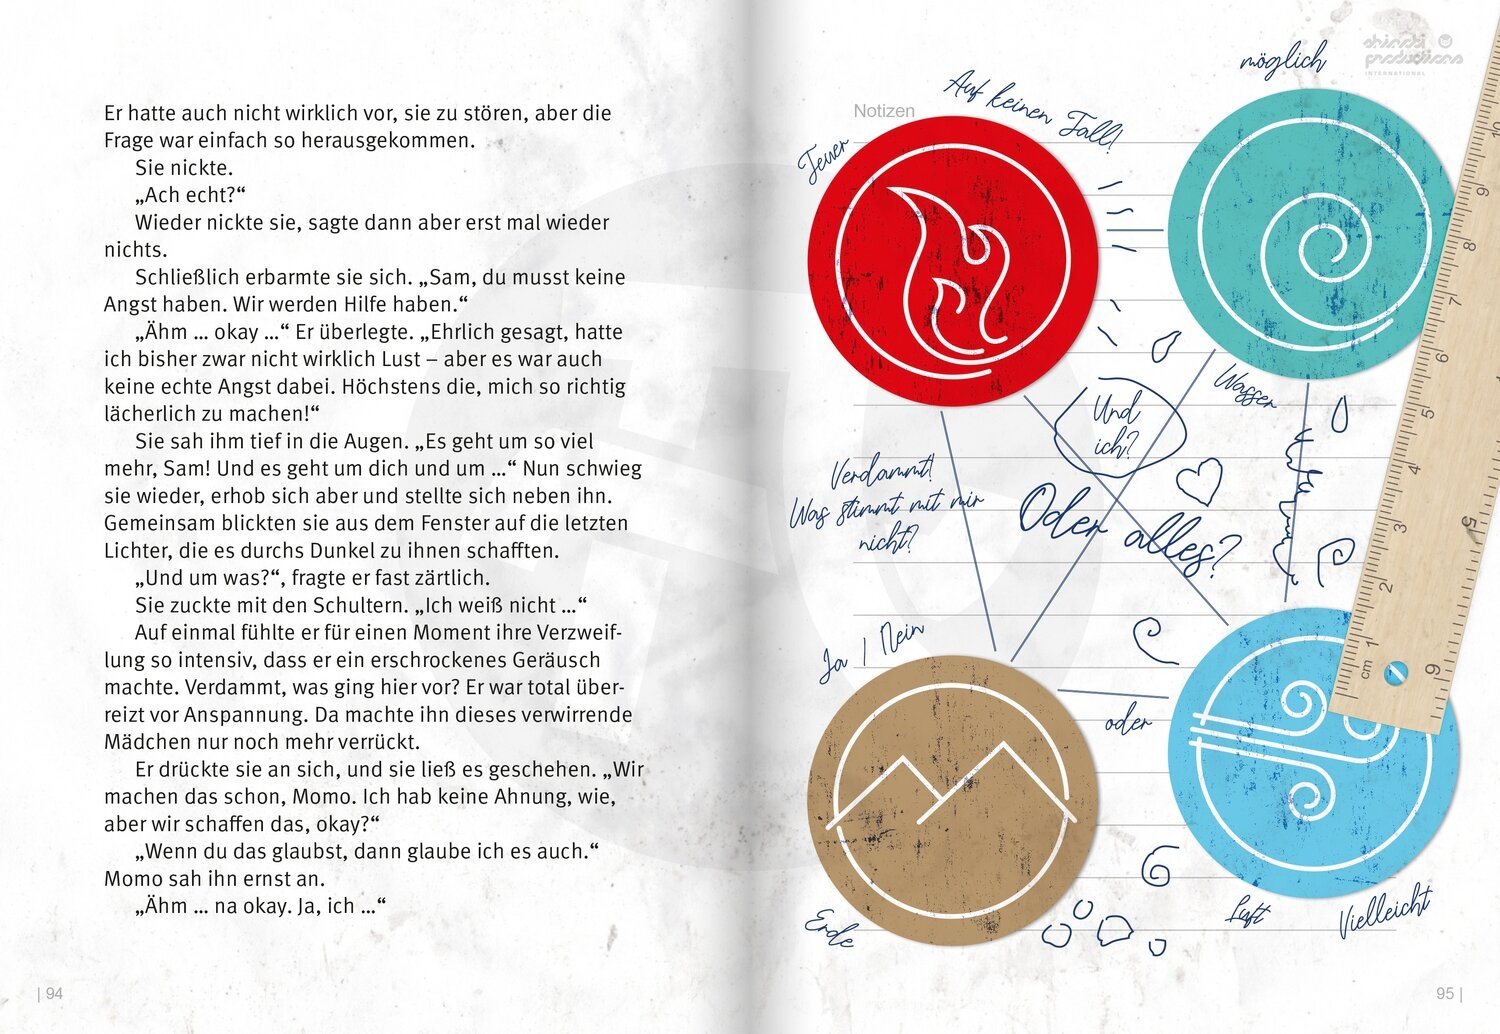 Er hatte auch nicht wirklich vor, sie zu stören, aber die
Frage war einfach so herausgekommen.
Sie nickte.
„Ach echt?“
Wieder nickte sie, sagte dann aber erst mal wieder
nichts.
Schließlich erbarmte sie sich. „Sam, du musst keine
Angst haben. Wir werden Hilfe haben.“
„Ähm ... okay ...“ Er überlegte. „Ehrlich gesagt, hatte
ich bisher zwar nicht wirklich Lust – aber es war auch
keine echte Angst dabei. Höchstens die, mich so richtig
lächerlich zu machen!“
Sie sah ihm tief in die Augen. „Es geht um so viel
mehr, Sam! Und es geht um dich und um ...“ Nun schwieg
sie wieder, erhob sich aber und stellte sich neben ihn.
Gemeinsam blickten sie aus dem Fenster auf die letzten
Lichter, die es durchs Dunkel zu ihnen schafften.
„Und um was?“, fragte er fast zärtlich.
Sie zuckte mit den Schultern. „Ich weiß nicht ...“
Auf einmal fühlte er für einen Moment ihre Verzweif-
lung so intensiv, dass er ein erschrockenes Geräusch
machte. Verdammt, was ging hier vor? Er war total über-
reizt vor Anspannung. Da machte ihn dieses verwirrende
Mädchen nur noch mehr verrückt.
Er drückte sie an sich, und sie ließ es geschehen. „Wir
machen das schon, Momo. Ich hab keine Ahnung, wie,
aber wir schaffen das, okay?“
„Wenn du das glaubst, dann glaube ich es auch.“
Momo sah ihn ernst an.
„Ähm ... na okay. Ja, ich ...“
| 94
shinobi
productions
INTERNATIONAL
möglich
Notizen
Auf keinen Fall!
Feuer
Wasser
Und
ich?
Verdammt!
Was stimmt mit mir
nicht?
Oder alles?
Warum
Ja / Nein
oder
Erde
Luft
Vielleicht
10
9
8
7
6
5
4
3
2
1
cm
5
6
95 |